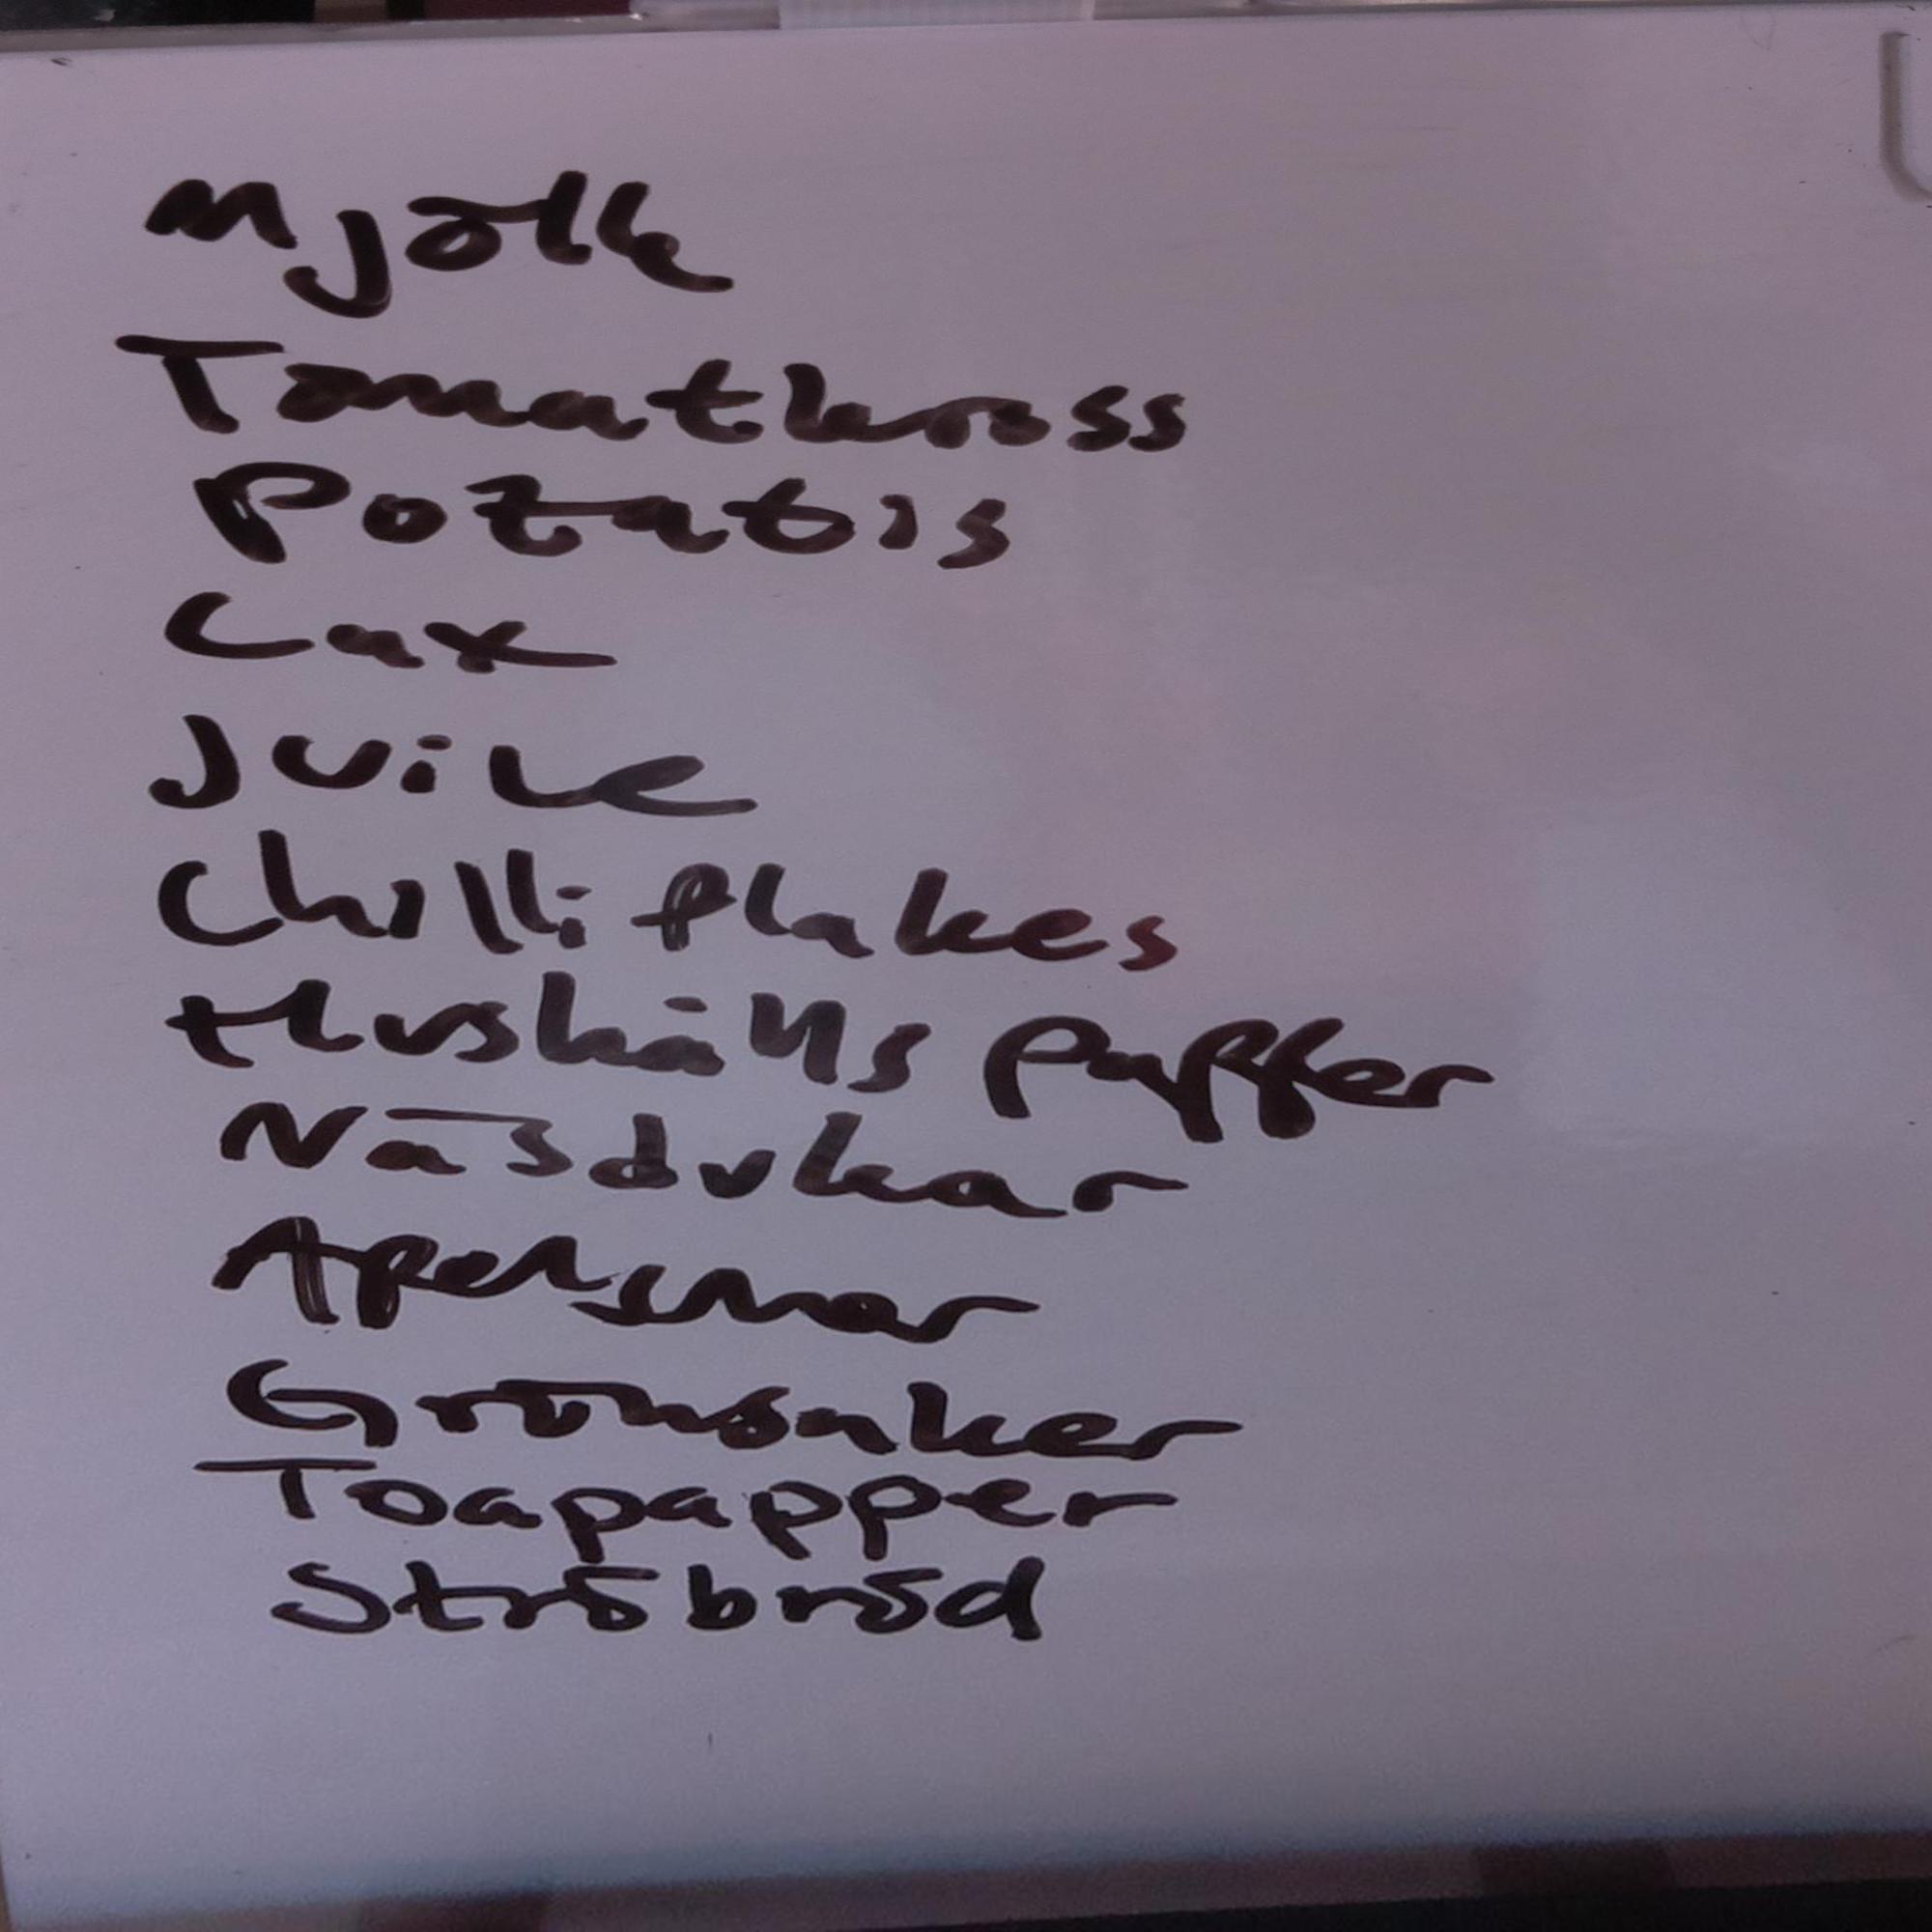 Mjölk
Tomatkross
Potatis
Lax
Juice
Chilli flakes
Hushålls papper
Näsdukar
Apelsiner
Grönsaker
Toapapper
Ströbröd